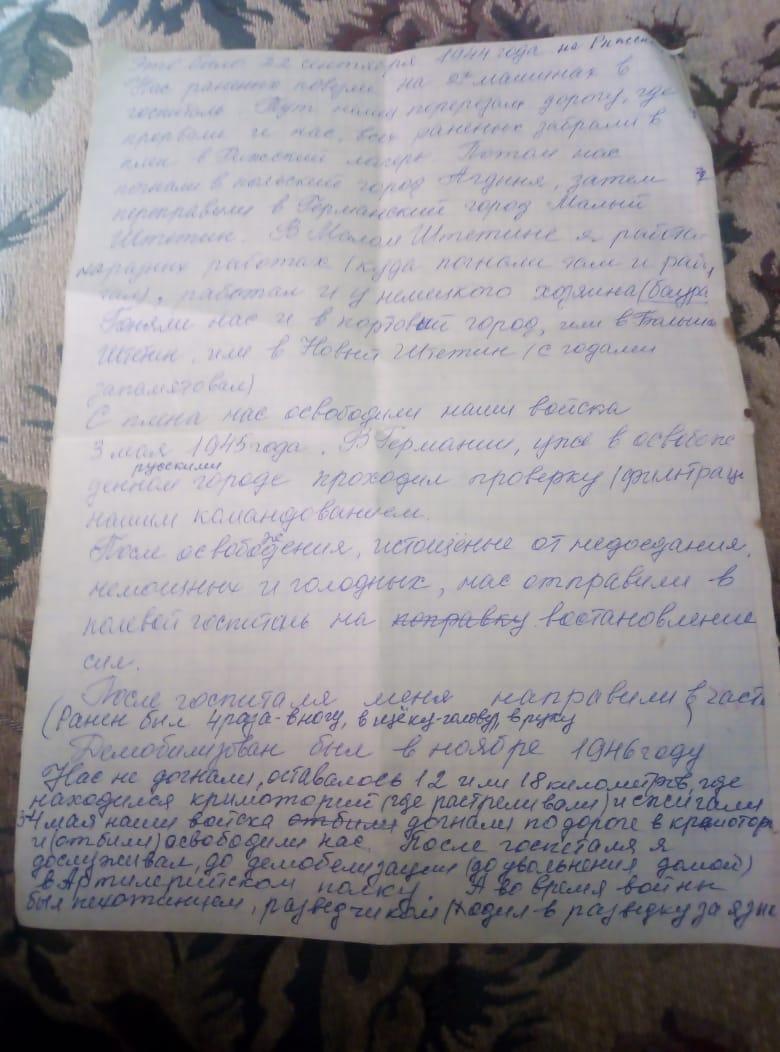 Это было 22 сентября 1944 года на
Нас раненых повезли на 2х машинах в
госпиталь. Тут немцы перерезали дорогу, где
прорвали и нас, всех раненных забрали в
плен в Рижский лагерь. Потом нас
погнали в польский город Агдыня, затем
переправили в Германский город Малый
Штетин. В Малом Штетине я работал
на разных работах (куда погнали там и рабо
тал), работал и у немецкого хозяина (баура
Гоняли нас и в портовый город, или в Большо
Штетин, или в Новый Штетин (с годами
запамятовал)
С плена нас освободили наши войска
3 мая 1945 года. В Германии, уже в освобож
русскими
денном городе проходил проверку (фильтрац
нашим командованием.
После освобождения, истощённые от недоедания,
немощных и голодных, нас отправили в
полевой госпиталь на поправку востановление
сил.
После госпиталя меня направили в часть
(Ранен был 4 раза - в ногу, в щёку-голову, в руку
Демобилизован был в ноябре 1946 году
Нас не догнали, оставалось 12 или 18 километров, где
находился крематорий (где растреливали) и сжигали
3-4 мая наши войска отбили догнали по дороге в крематори
и (отбили) освободили нас. После госпеталя я
дослуживал, до демобелизации (до увольнения домой)
в Артилерийском полку. А во время войны
был пехотинцем, разведчиком (ходил в разведку за язык